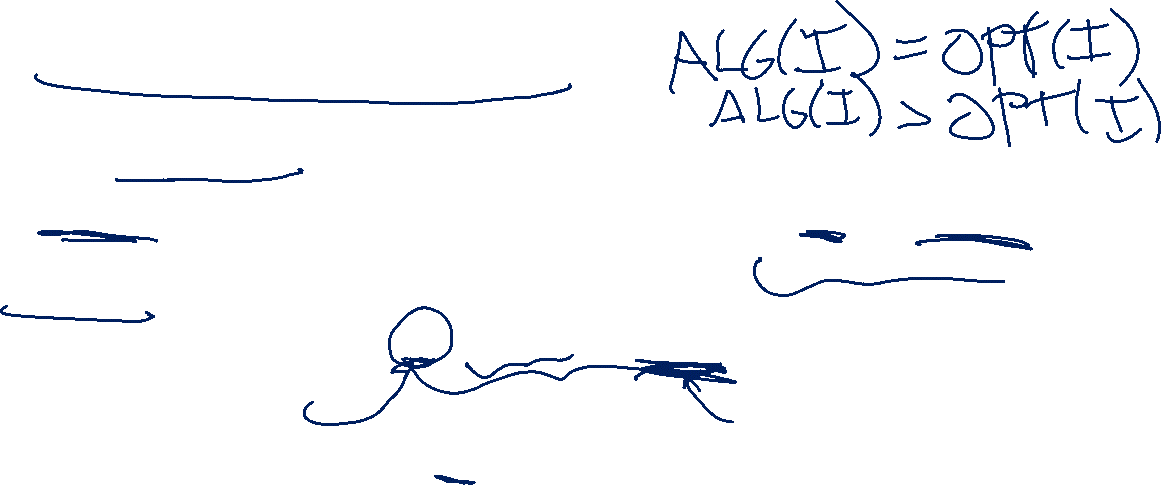 ALG(I) = OPT(I)
ALG(I) > OPT(I)